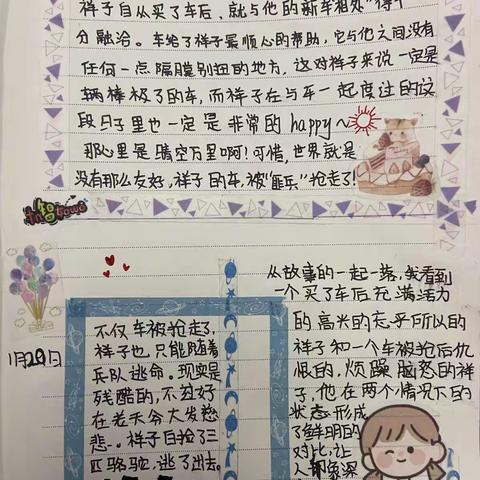 祥子自从买了车后、就与他的新车相处"得十
分融洽。车给了祥子最顺心的帮助,它与他之间没有
任何一点隔膜别扭的地方,这对祥子来说一定是
辆棒极了的车,而祥子在与车一起度过的这
段日子里也一定是非常的happy~
那心里是晴空万里啊!可惜,世界就是
没有那么友好,祥子的车,被"匪兵"抢走了!
从故事的一起一落,我看到
一个买了车后充满活力
的高兴的忘乎所以的
祥子和一个车被抢后仇
恨的,烦躁脑怒的祥
子,他在两个情况下的
状态形成
了鲜明的
对比,让
人印象深
1月20日
不仅车被抢走了,
祥子也只能随着
兵队逃命。现实是
残酷的,不过好
在老天爷大发慈
悲。祥子白捡了三
匹骆驼,逃了出去。